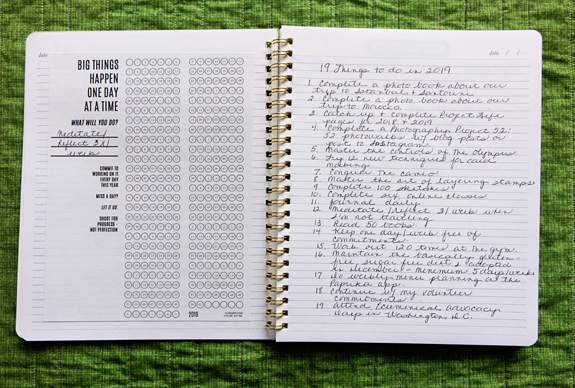 date
BIG THINGS
HAPPEN
ONE DAY
AT A TIME
WHAT WILL YOU DO?
Meditate/
Reflect 3x/
week
COMMIT TO
WORKING ON IT
EVERY DAY
THIS YEAR
MISS A DAY?
LET IT GO.
SHOOT FOR
PROGRESS -
NOT PERFECTION
2019
date / /
19 Things to do in 2019
1. Complete a photo book about our
trip to Istanbul & Santorini
2. Complete a photo book about our
trip to Morocco.
3. Catch up & complete Project Life
pages for 2018 & 2019
4. Complete a Photography Project 52:
52 photos w/ blog posts or
post to Instagram
5. Master the controls of the Olympus
6. Try 12 new techniques for card
making.
7. Conquer the cameo
8. Master the art of layering stamps
9. Complete 100 sketches
10. Complete six online classes
11. Journal daily
12. Meditate/reflect 3x/week when
I'm not traveling
13. Read 50 books.
14. Keep one day/week free of
commitments.
15. Work out 120 times at the gym.
16. Maintain the basically gluten-
free, sugar free diet I adopted
in December - minimum 5 days/week
17. Do weekly menu planning at the
Paprika app.
18. Continue w/ my volunteer
commitments
19. Attend Ecumenical Advocacy
Days in Washington, D.C.